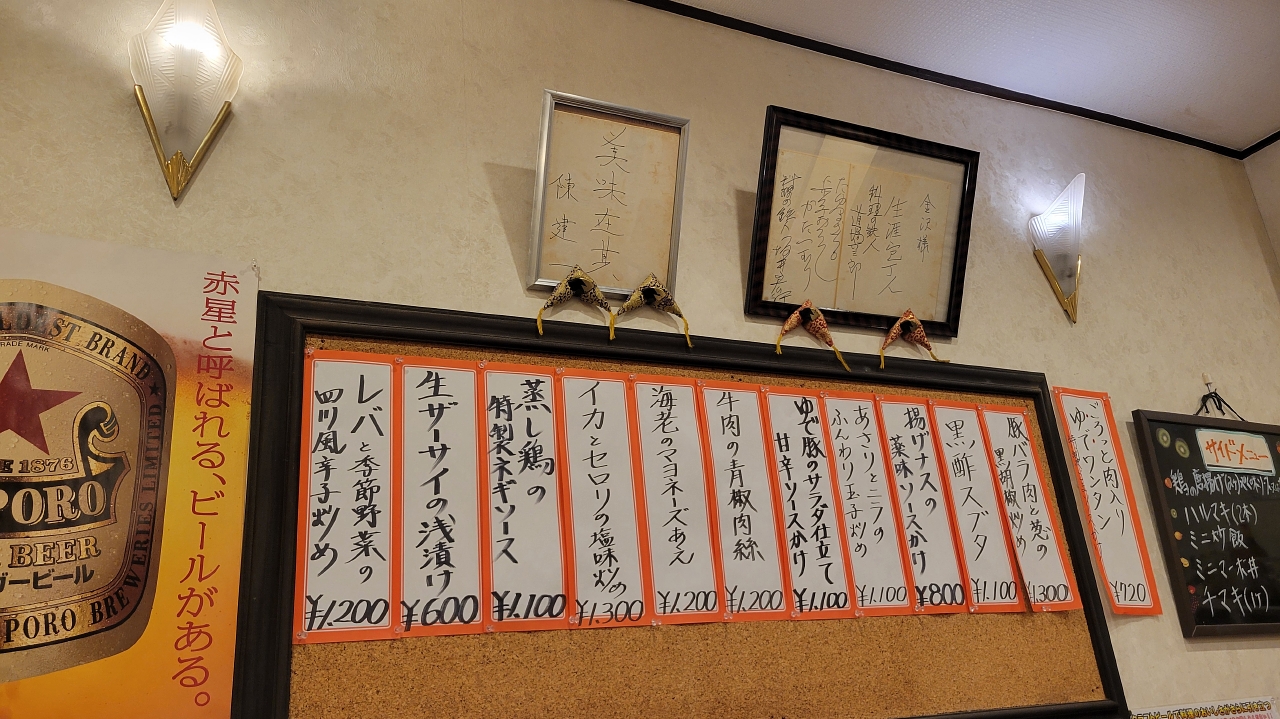 美味在其
陳建一
金沢様
生涯包丁人
料理の鉄人
道場六三郎
赤星と呼ばれる、ビールがある。
TRADE MARK
BRAND
1876
PORO
BEER
ガービール
PORO BREWERIES LIMITED
豚バラ肉と葱の
黒胡椒炒め
¥1.300
黒酢スブタ
¥1.100
揚げナスの
薬味ソースかけ
¥800
あさりとニラの
ふんわり玉子炒め
¥1.100
ゆで豚のサラダ仕立て
甘辛ソースかけ
¥1.100
牛肉の青椒肉絲
¥1.200
海老のマヨネーズあえ
¥1.200
イカとセロリの塩味炒め
¥1.300
蒸し鶏の
特製ネギソース
¥1.100
生ザーサイの浅漬け
¥600
レバと季節野菜の
四川風辛子炒め
¥1.200
ごろっと肉入り
ゆでワンタン
¥720
サイドメニュー
ハルマキ(2本)
ミニ炒飯
ミニマーボ丼
チマキ(1ケ)